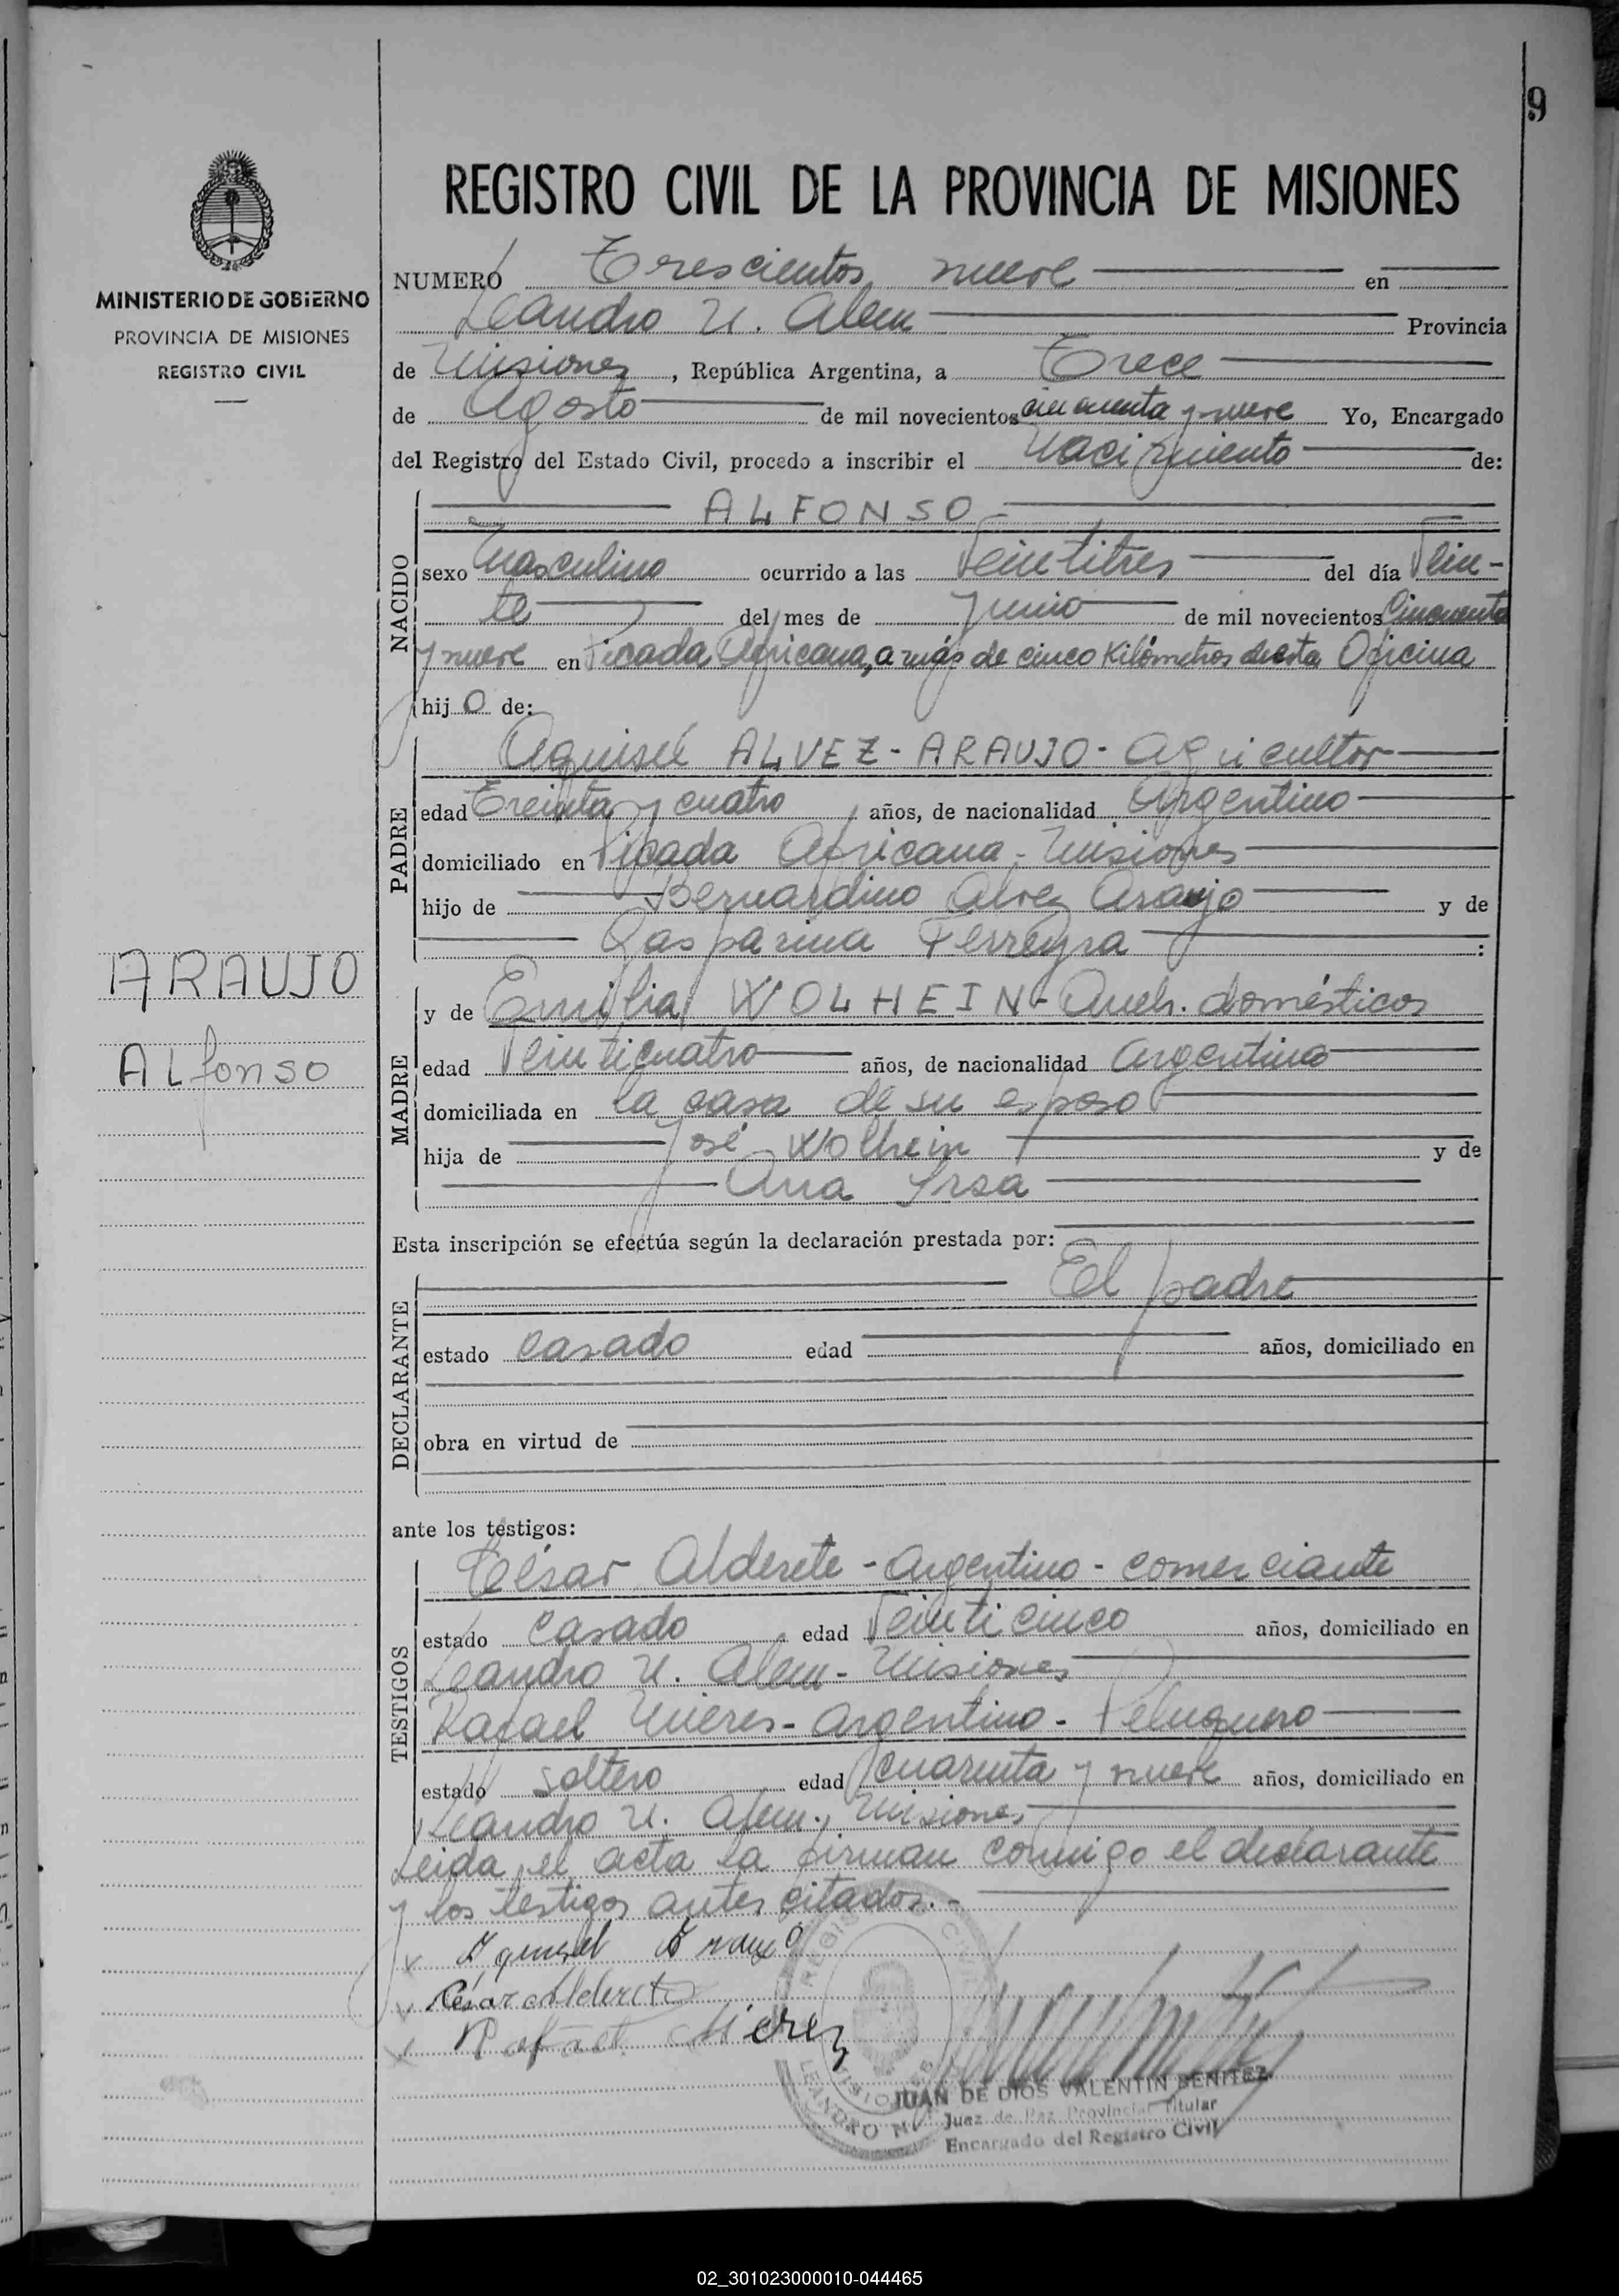 9
REGISTRO CIVIL DE LA PROVINCIA DE MISIONES
MINISTERIO DE GOBIERNO
PROVINCIA DE MISIONES
REGISTRO CIVIL
NUMERO Trescientos nueve en
Leandro N. Alem Provincia
de Misiones, República Argentina, a Trece
de Agosto de mil novecientos cincuenta y nueve Yo, Encargado
del Registro del Estado Civil, procedo a inscribir el Nacimiento de:
ALFONSO
NACIDO
sexo Masculino ocurrido a las Veintitres del día Vein-
te del mes de Junio de mil novecientos Cincuenta
y nueve en Picada Africana, a más de cinco Kilómetros de esta Oficina
hijo de:
PADRE
ALVEZ - ARAUJO - Agricultor
edad Treinta y cuatro años, de nacionalidad Argentino
domiciliado en Picada Africana - Misiones
hijo de Bernardino Alvez Araujo y de
Gasparina Ferreyra :
ARAUJO
Alfonso
MADRE
y de Emilia WOLHEIN - Queh. domésticos
edad Veinticuatro años, de nacionalidad Argentina
domiciliada en la casa de su esposo
hija de José Wolhein y de
Ana
Esta inscripción se efectúa según la declaración prestada por:
DECLARANTE
El padre
estado casado edad años, domiciliado en
obra en virtud de
ante los testigos:
TESTIGOS
César Alderete - Argentino - comerciante
estado casado edad Veinticinco años, domiciliado en
Leandro N. Alem - Misiones
Rafael Mieres - Argentino - Peluquero
estado soltero edad cuarenta y nueve años, domiciliado en
Leandro N. Alem, Misiones
Leida el acta la firman conmigo el declarante
y los testigos antes citados.-
César Alderete
Rafael Mierez
JUAN DE DIOS VALENTIN BENITEZ
Juez de Paz Provincial Titular
Encargado del Registro Civil
02_301023000010-044465